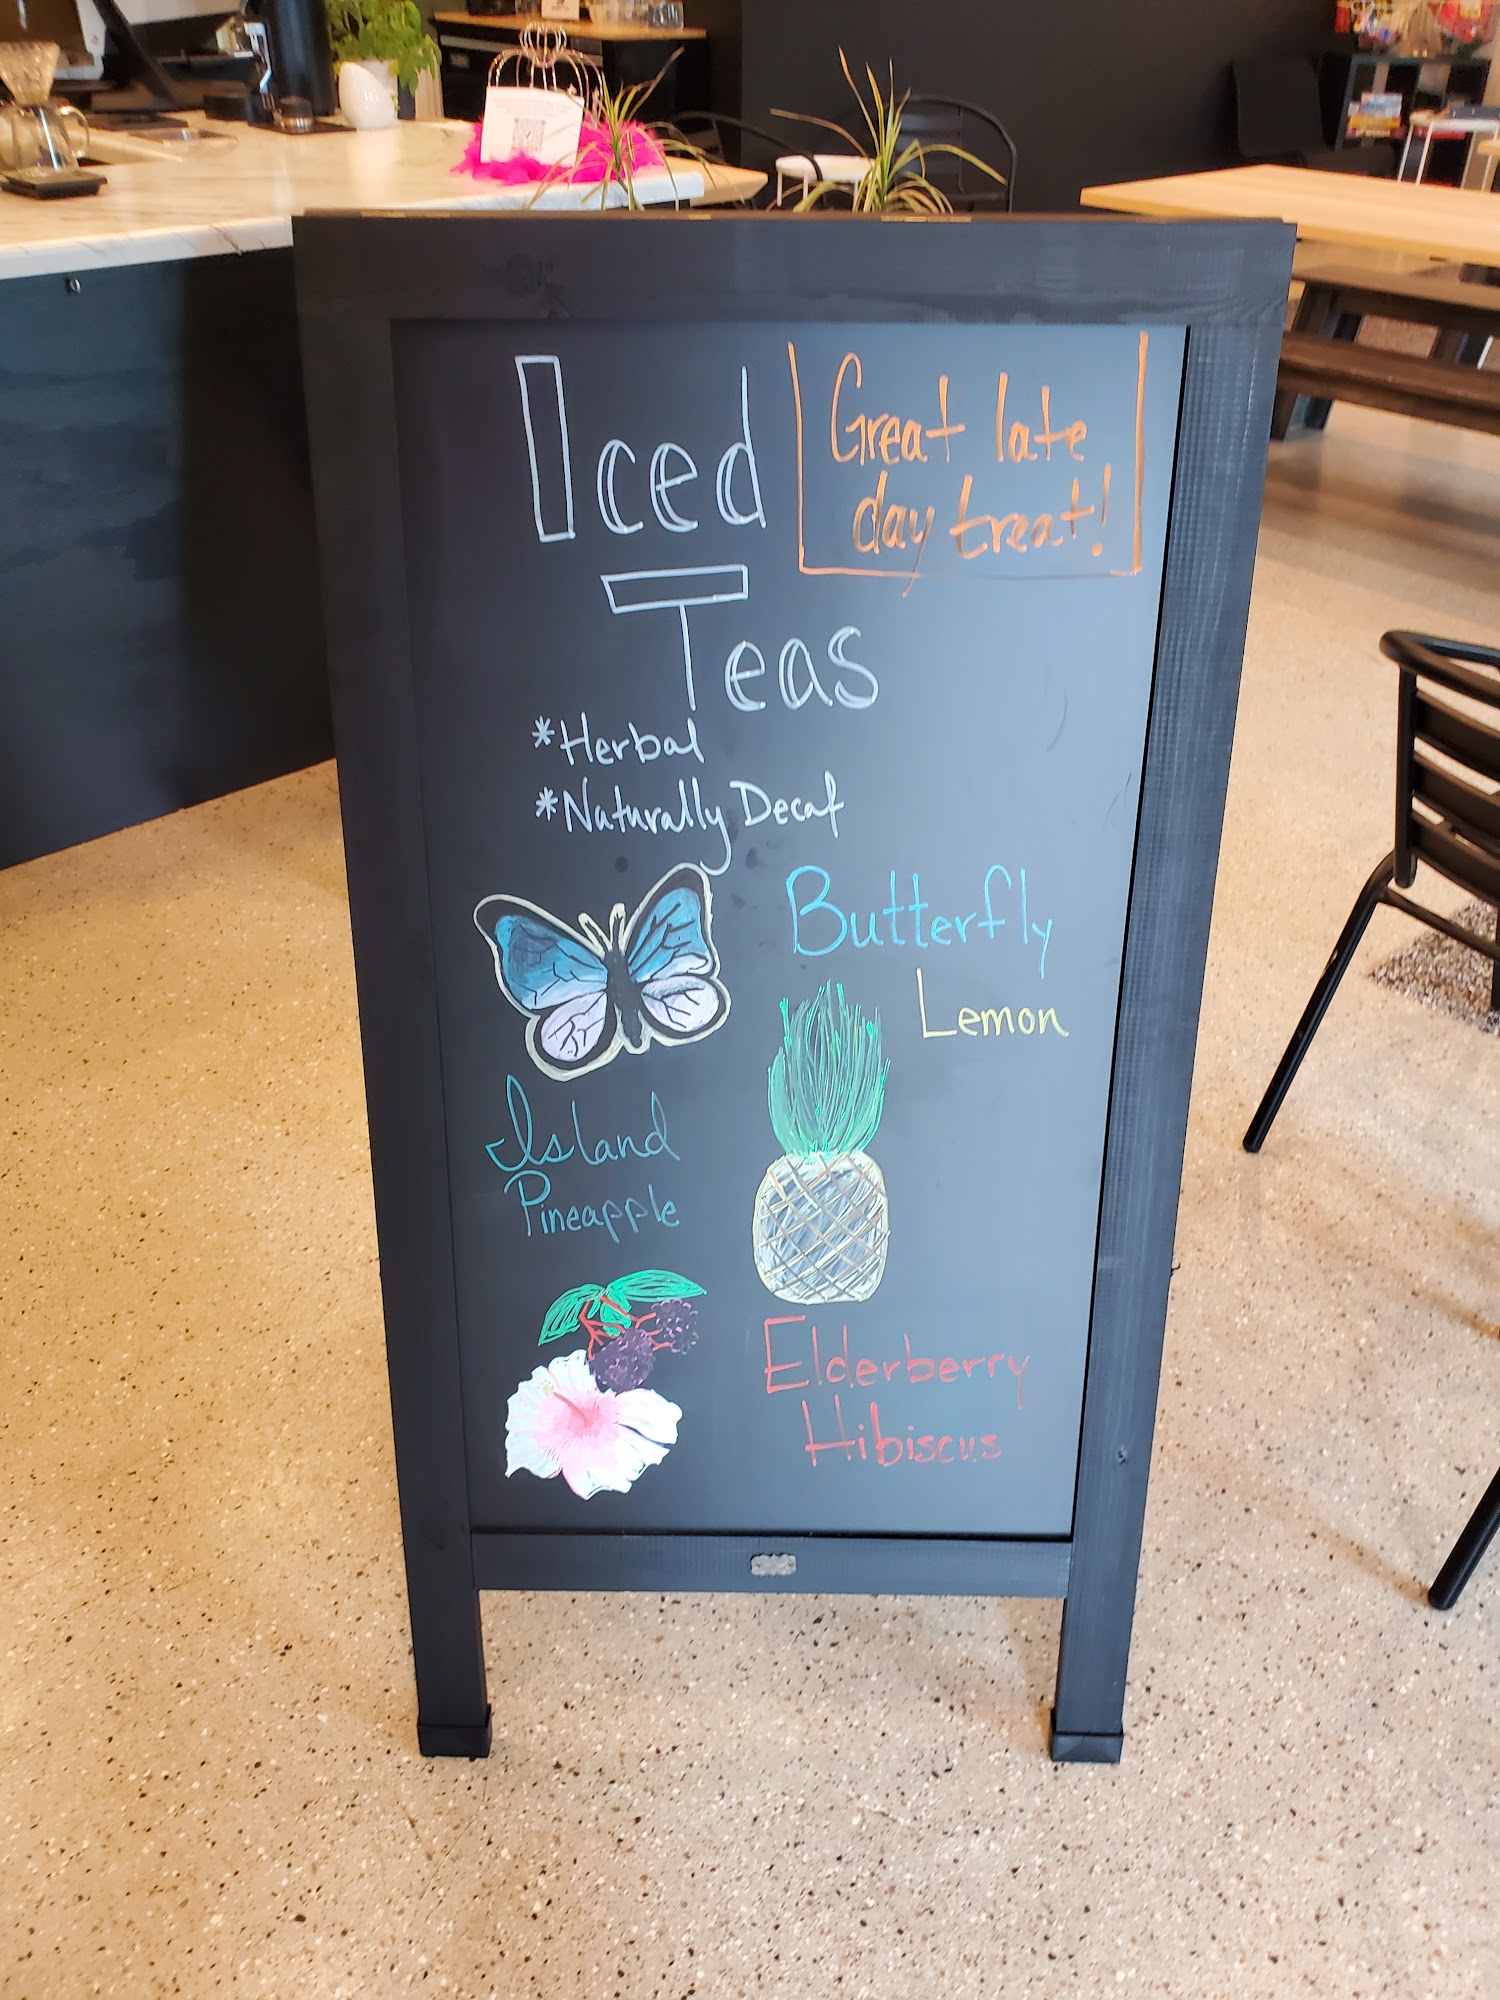 Iced
Teas
Great late
day treat!
*Herbal
*Naturally Decaf
Butterfly
Lemon
Island
Pineapple
Elderberry
Hibiscus